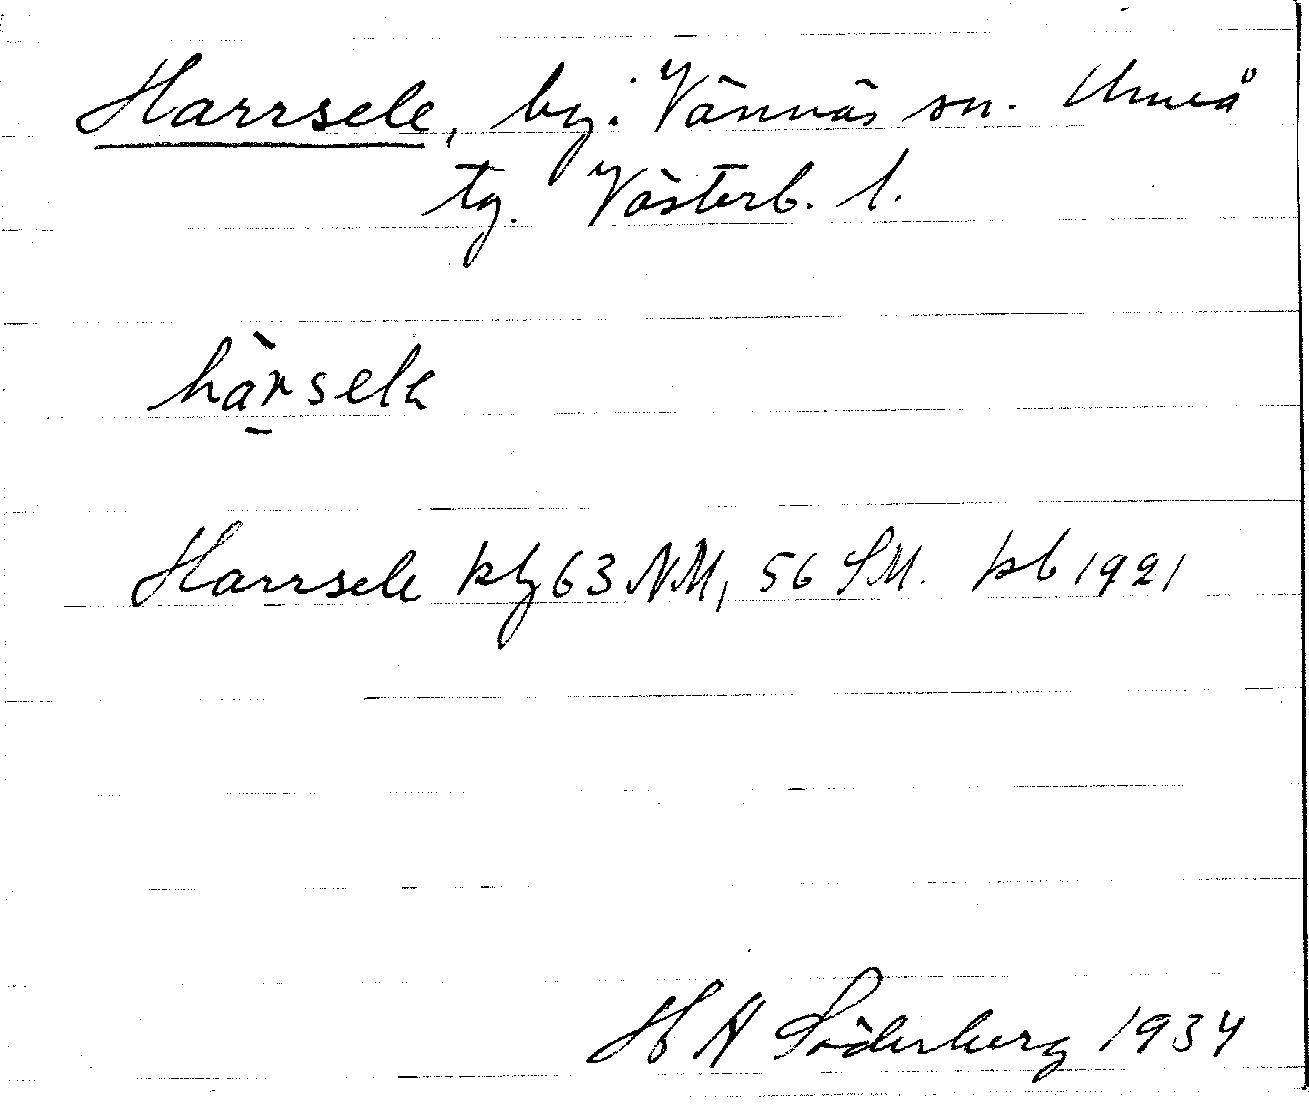 Harrsele, by i Vännäs sn. Umeå
tg. Västerb. l.
hàrsela
Harrsele kbg 63 NM, 56 SM. kb 1921
H A Söderberg 1934